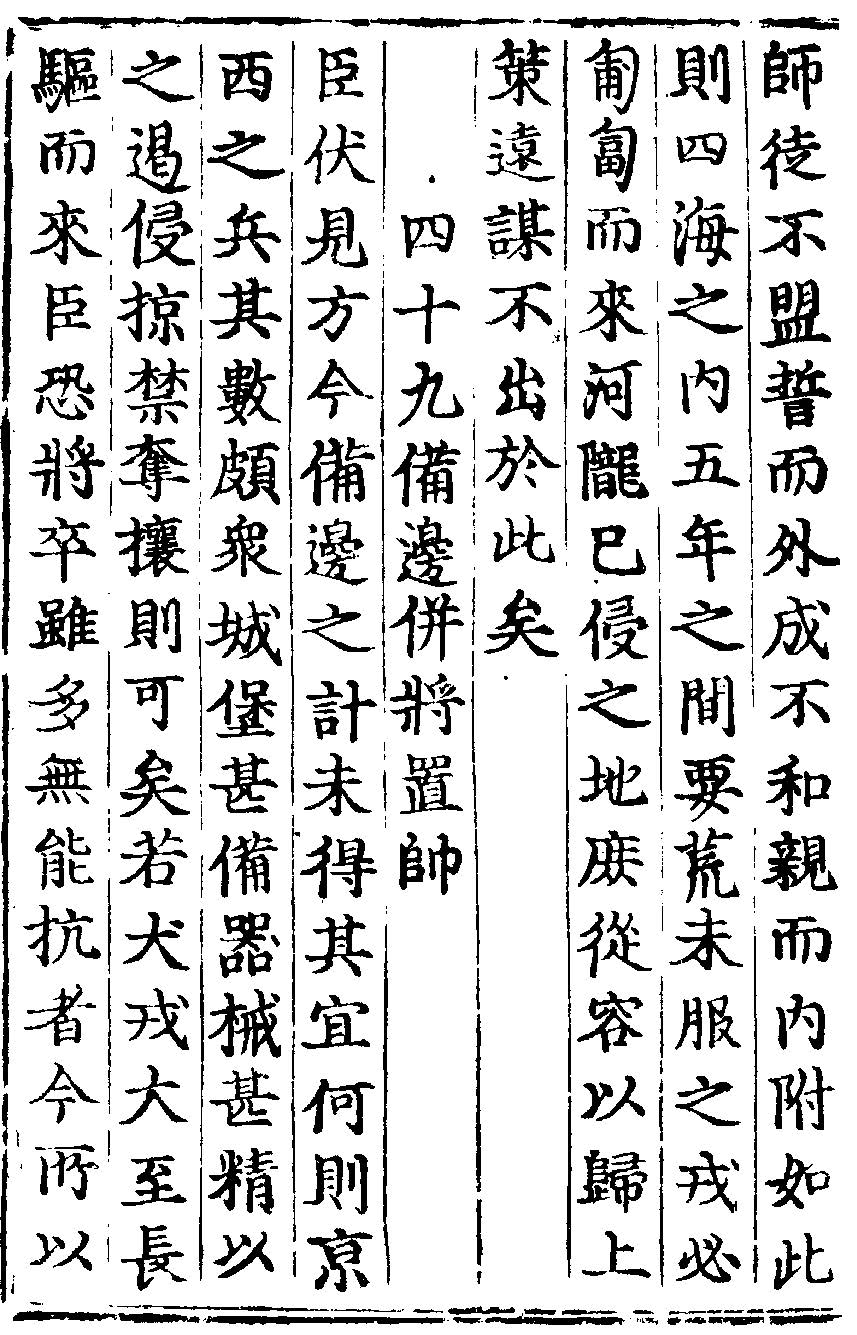 師徒不盟誓而外成不和親而内附如此
則四海之内五年之間要荒未服之戎必
匍匐而來河隴已侵之地庻從容以歸上
䇿遠謀不出於此矣
四十九備邊併將置帥
臣伏見方今備邊之計未得其宜何則京
西之兵其數頗衆城堡甚備器械甚精以
之遏侵掠禁奪攘則可矣若犬戎大至長
驅而來臣恐將卒雖多無能抗者今所以